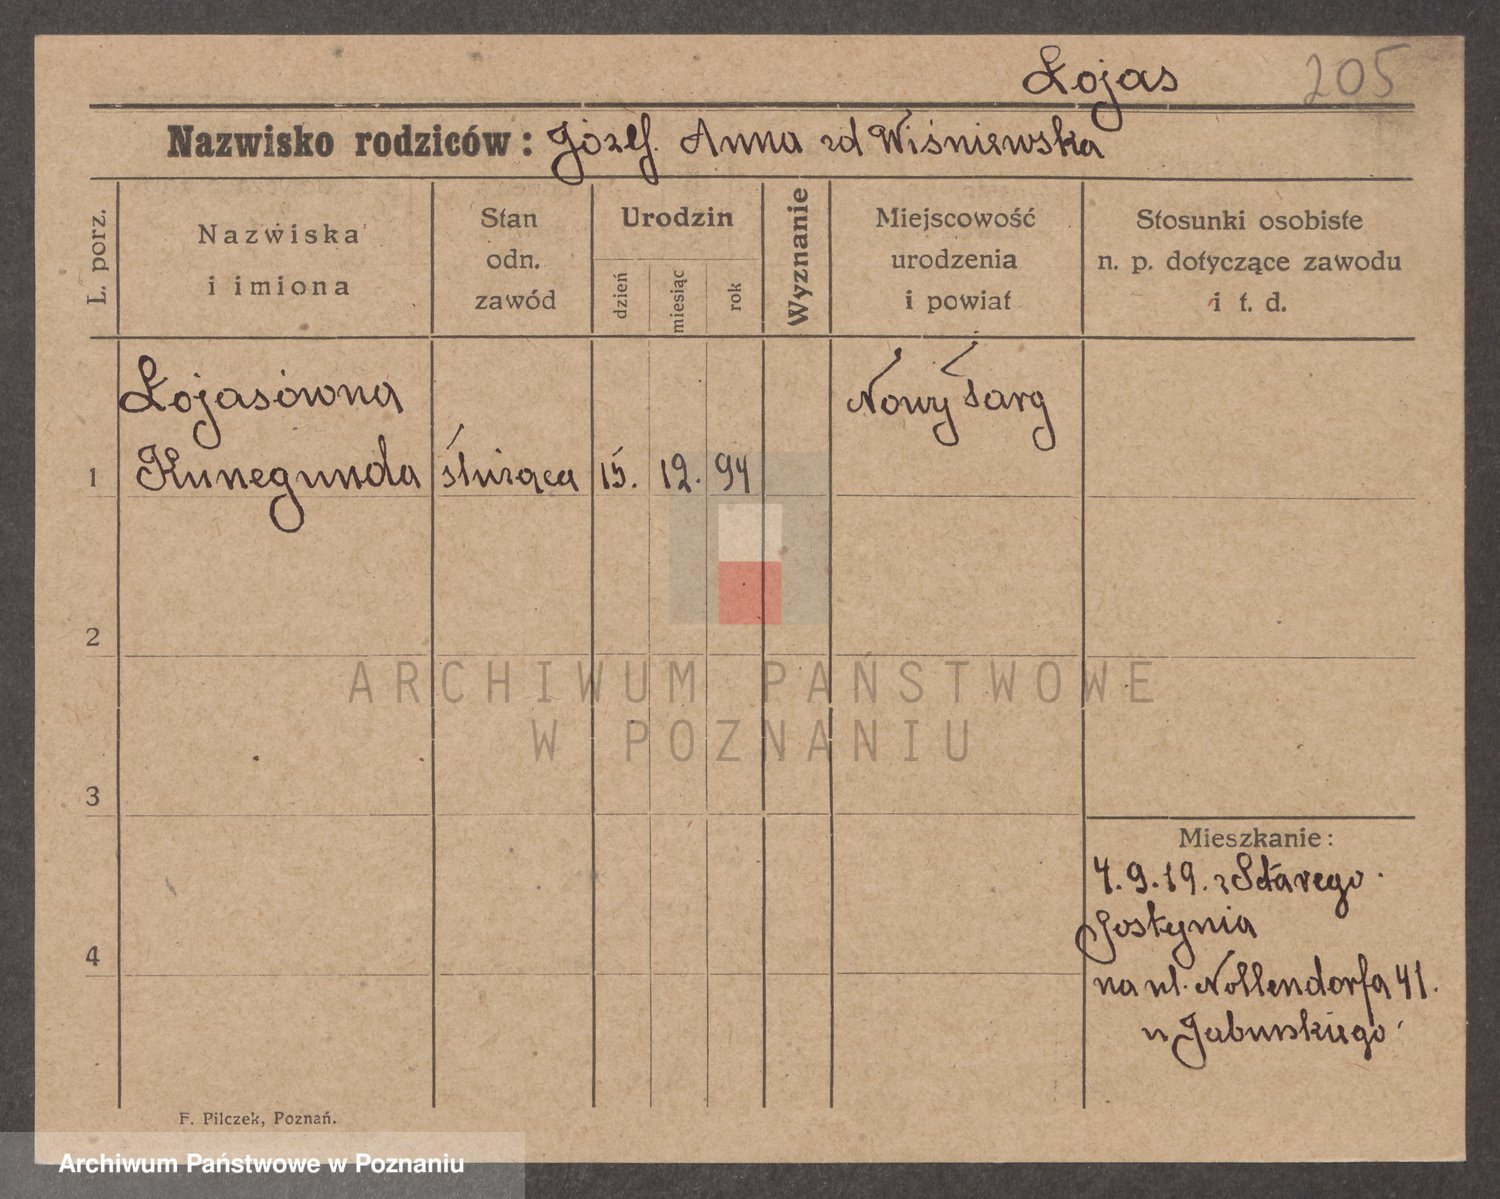 Łojas 205
Nazwisko rodziców: Józef. Anna zd Wiśniewska
L. porz.
Nazwiska
i imiona
Stan
odn.
zawód
Urodzin
dzień
miesiąc
rok
Wyznanie
Miejscowość
urodzenia
i powiat
Stosunki osobiste
n. p. dotyczące zawodu
i t. d.
Łojasówna Nowy Targ
1 Kunegunda służąca 15. 12. 94
2
ARCHIWUM PAŃSTWOWE
W POZNANIU
3
Mieszkanie:
4.9.19. z Starego
Gostynia
4
na ul. Nollendorfa 41.
u Jabuskiego
F. Pilczek, Poznań.
Archiwum Państwowe w Poznaniu